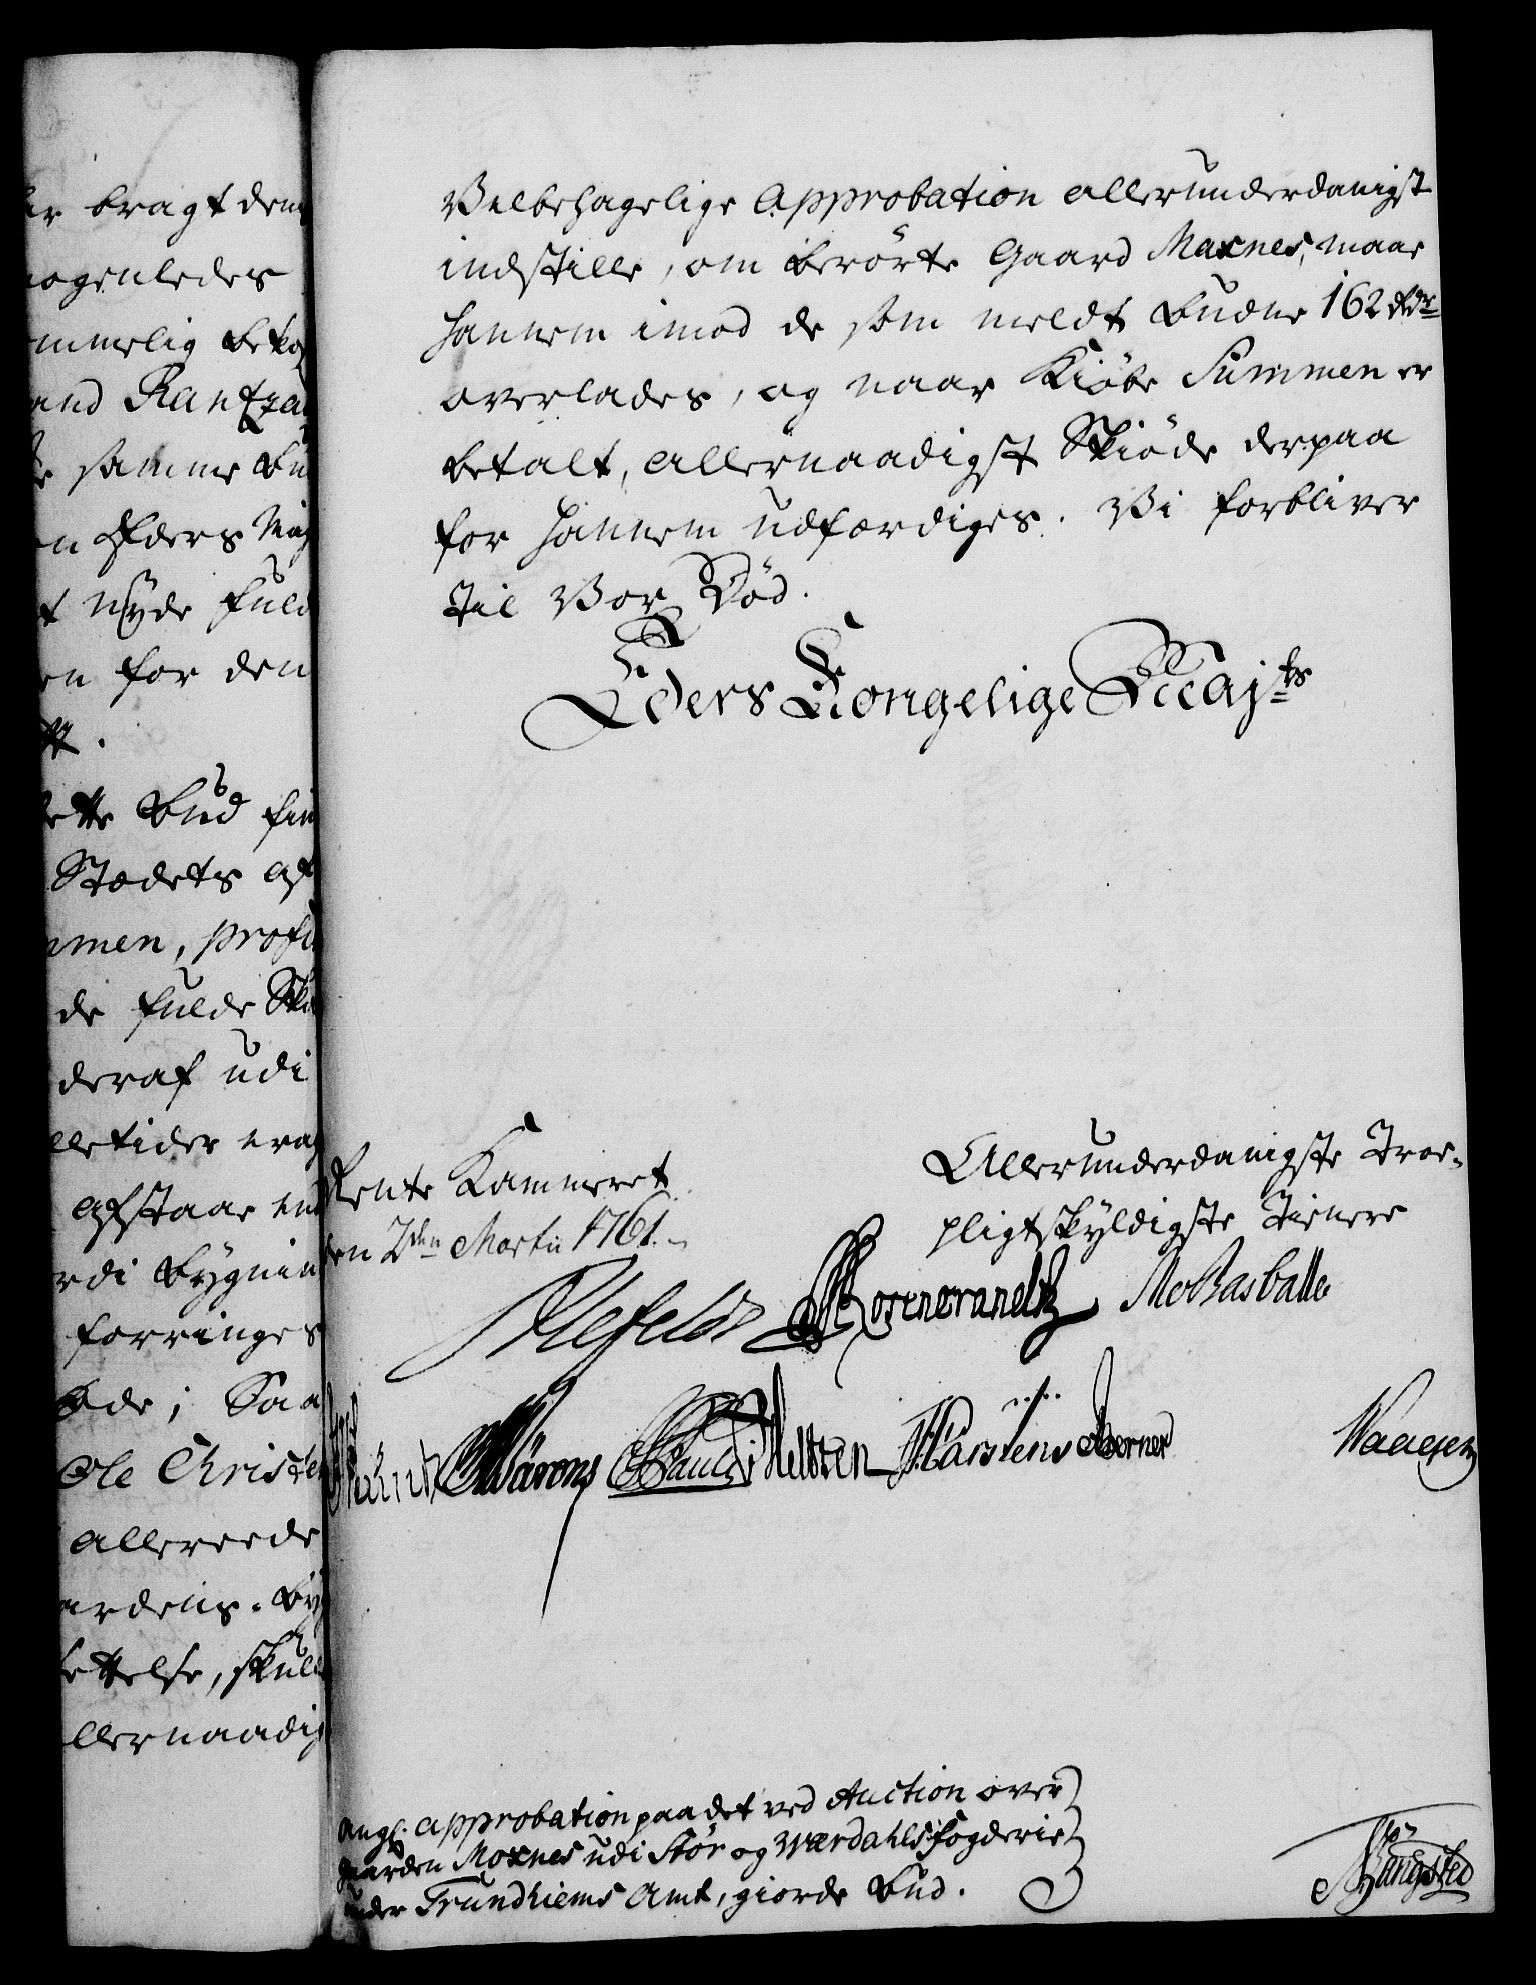 er bragt dem
nogenledes
mmelig beko
and Rantzau
samme Bu
n Eders Maj
t nyde fuld
en for den
tt.
ette Bud fin
Stædets Af
mmen, profi
de fulde Ski
deraf udi
lletider erag
Afstaae end
rdi Bygnin
forringes
øde; Saa
Ole Christe
allereede
ardens. By
ettelse, skul
llernaadig
Velbehagelige Approbation allerunderdanigst
indstille, om berörte Gaard Maxnes, maae
hannem imod de som meldt budne 162 Rdr
overlades, og naar Kiöbe Summen er
betalt, allernaadigst Skiöde derpaa
for hannem udfærdiges. Vi forbliver
til Vor Död.
Eders Kongelige Maj.ts
Rente Kammeret
den 2den Martii 1761.
Allerunderdanigste Troe-
pligtskyldigste Tienere
Alefeldt Rosencrandtz Mo Rasballe
Pauli Heltzen H Carstens Berner
Waagen
angl. Approbation paa det ved Auction over
gaarden Moxnes udi Stör og Werdahls Fogderie
under Trundhiems Amt, giorde Bud.
Bangsted